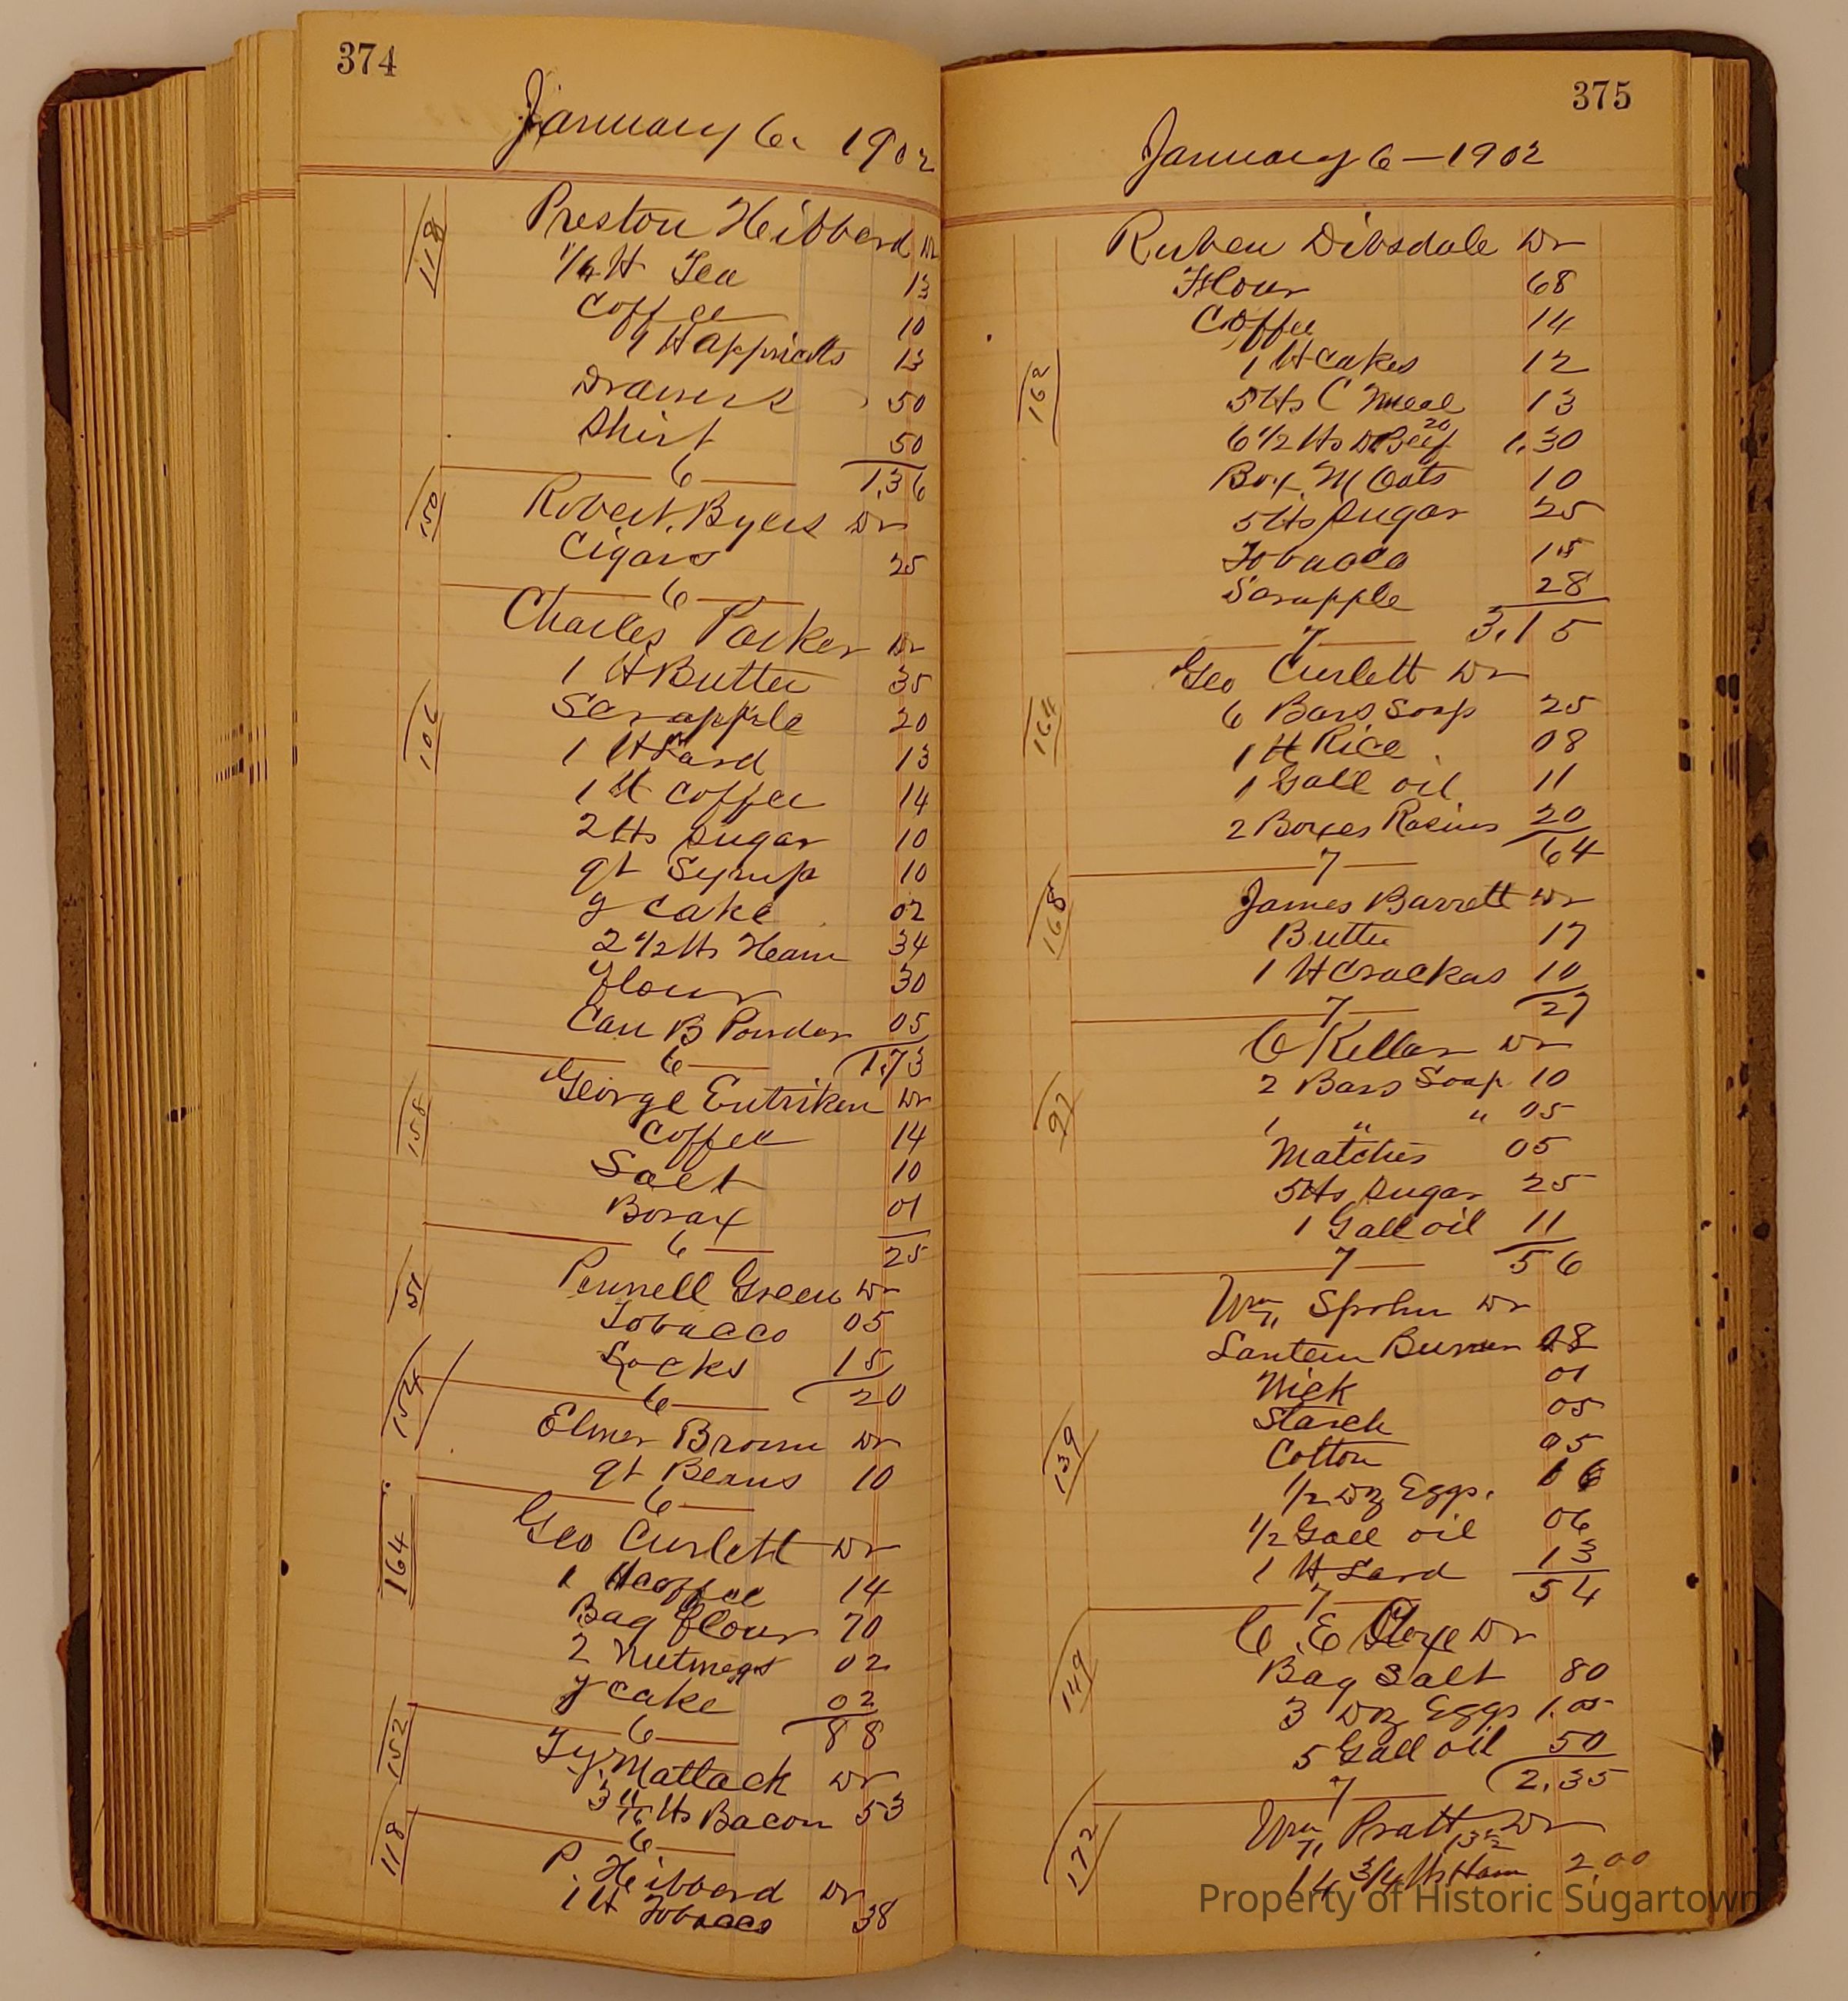 374
January 6. 1902
118
Preston Hibberd Dr
1/4 ℔ Tea 13
Coffee 10
1 ℔ appricots 13
Drawers 50
Shirt 50
6 1.36
150
Robert Byers Dr
Cigars 25
6
Charles Parker Dr
1 ℔ Butter 35
106
Scrapple 20
1 ℔ Lard 13
1 ℔ Coffee 14
2 ℔s Sugar 10
qt Syrup 10
y cake 02
2 1/2 ℔s Ham 34
flour 30
Can B Powder 05
6 1.73
158
George Entriken Dr
Coffee 14
Salt 10
Borax 01
6 25
51
Pennell Green Dr
Tobacco 05
Socks 15
6 20
154
Elmer Brown Dr
qt Beans 10
6
164
Geo Curlett Dr
1 ℔ Coffee 14
Bag flour 70
2 Nutmegs 02
y cake 02
6 88
152
Ty. Matlack Dr
3 11/16 ℔s Bacon 53
6
118
P. Hibberd Dr
1 ℔ Tobacco 38
375
January 6 — 1902
Ruben Dibsdale Dr
Flour 68
Coffee 14
162
1 ℔ Cakes 12
5 ℔s C Meal 13
6 1/2 ℔s D Beef 20 1.30
Box M Oats 10
5 ℔s Sugar 25
Tobacco 15
Scrapple 28
7 3.15
164
Geo Curlett Dr
6 Bars Soap 25
1 ℔ Rice 08
1 Gall oil 11
2 Boxes Rasins 20
7 64
168
James Barrett Dr
Butter 17
1 ℔ Crackas 10
7 27
C Kellar Dr
97
2 Bars Soap 10
1 " " 05
Matches 05
5 ℔s Sugar 25
1 Gall oil 11
7 56
Wm. Spohn Dr
Lantern Burner 08
Wick 01
Starch 05
139
Cotton 05
1/2 Dz Eggs. 16
1/2 Gall oil 06
1 ℔ Lard 13
7 54
149
C. E. Dr
Bag Salt 80
3 Dz Eggs 1.05
5 Gall oil 50
7 2.35
172
Wm. Pratt Dr
14 3/4 ℔s Ham 13½ 2.00
Property of Historic Sugartown